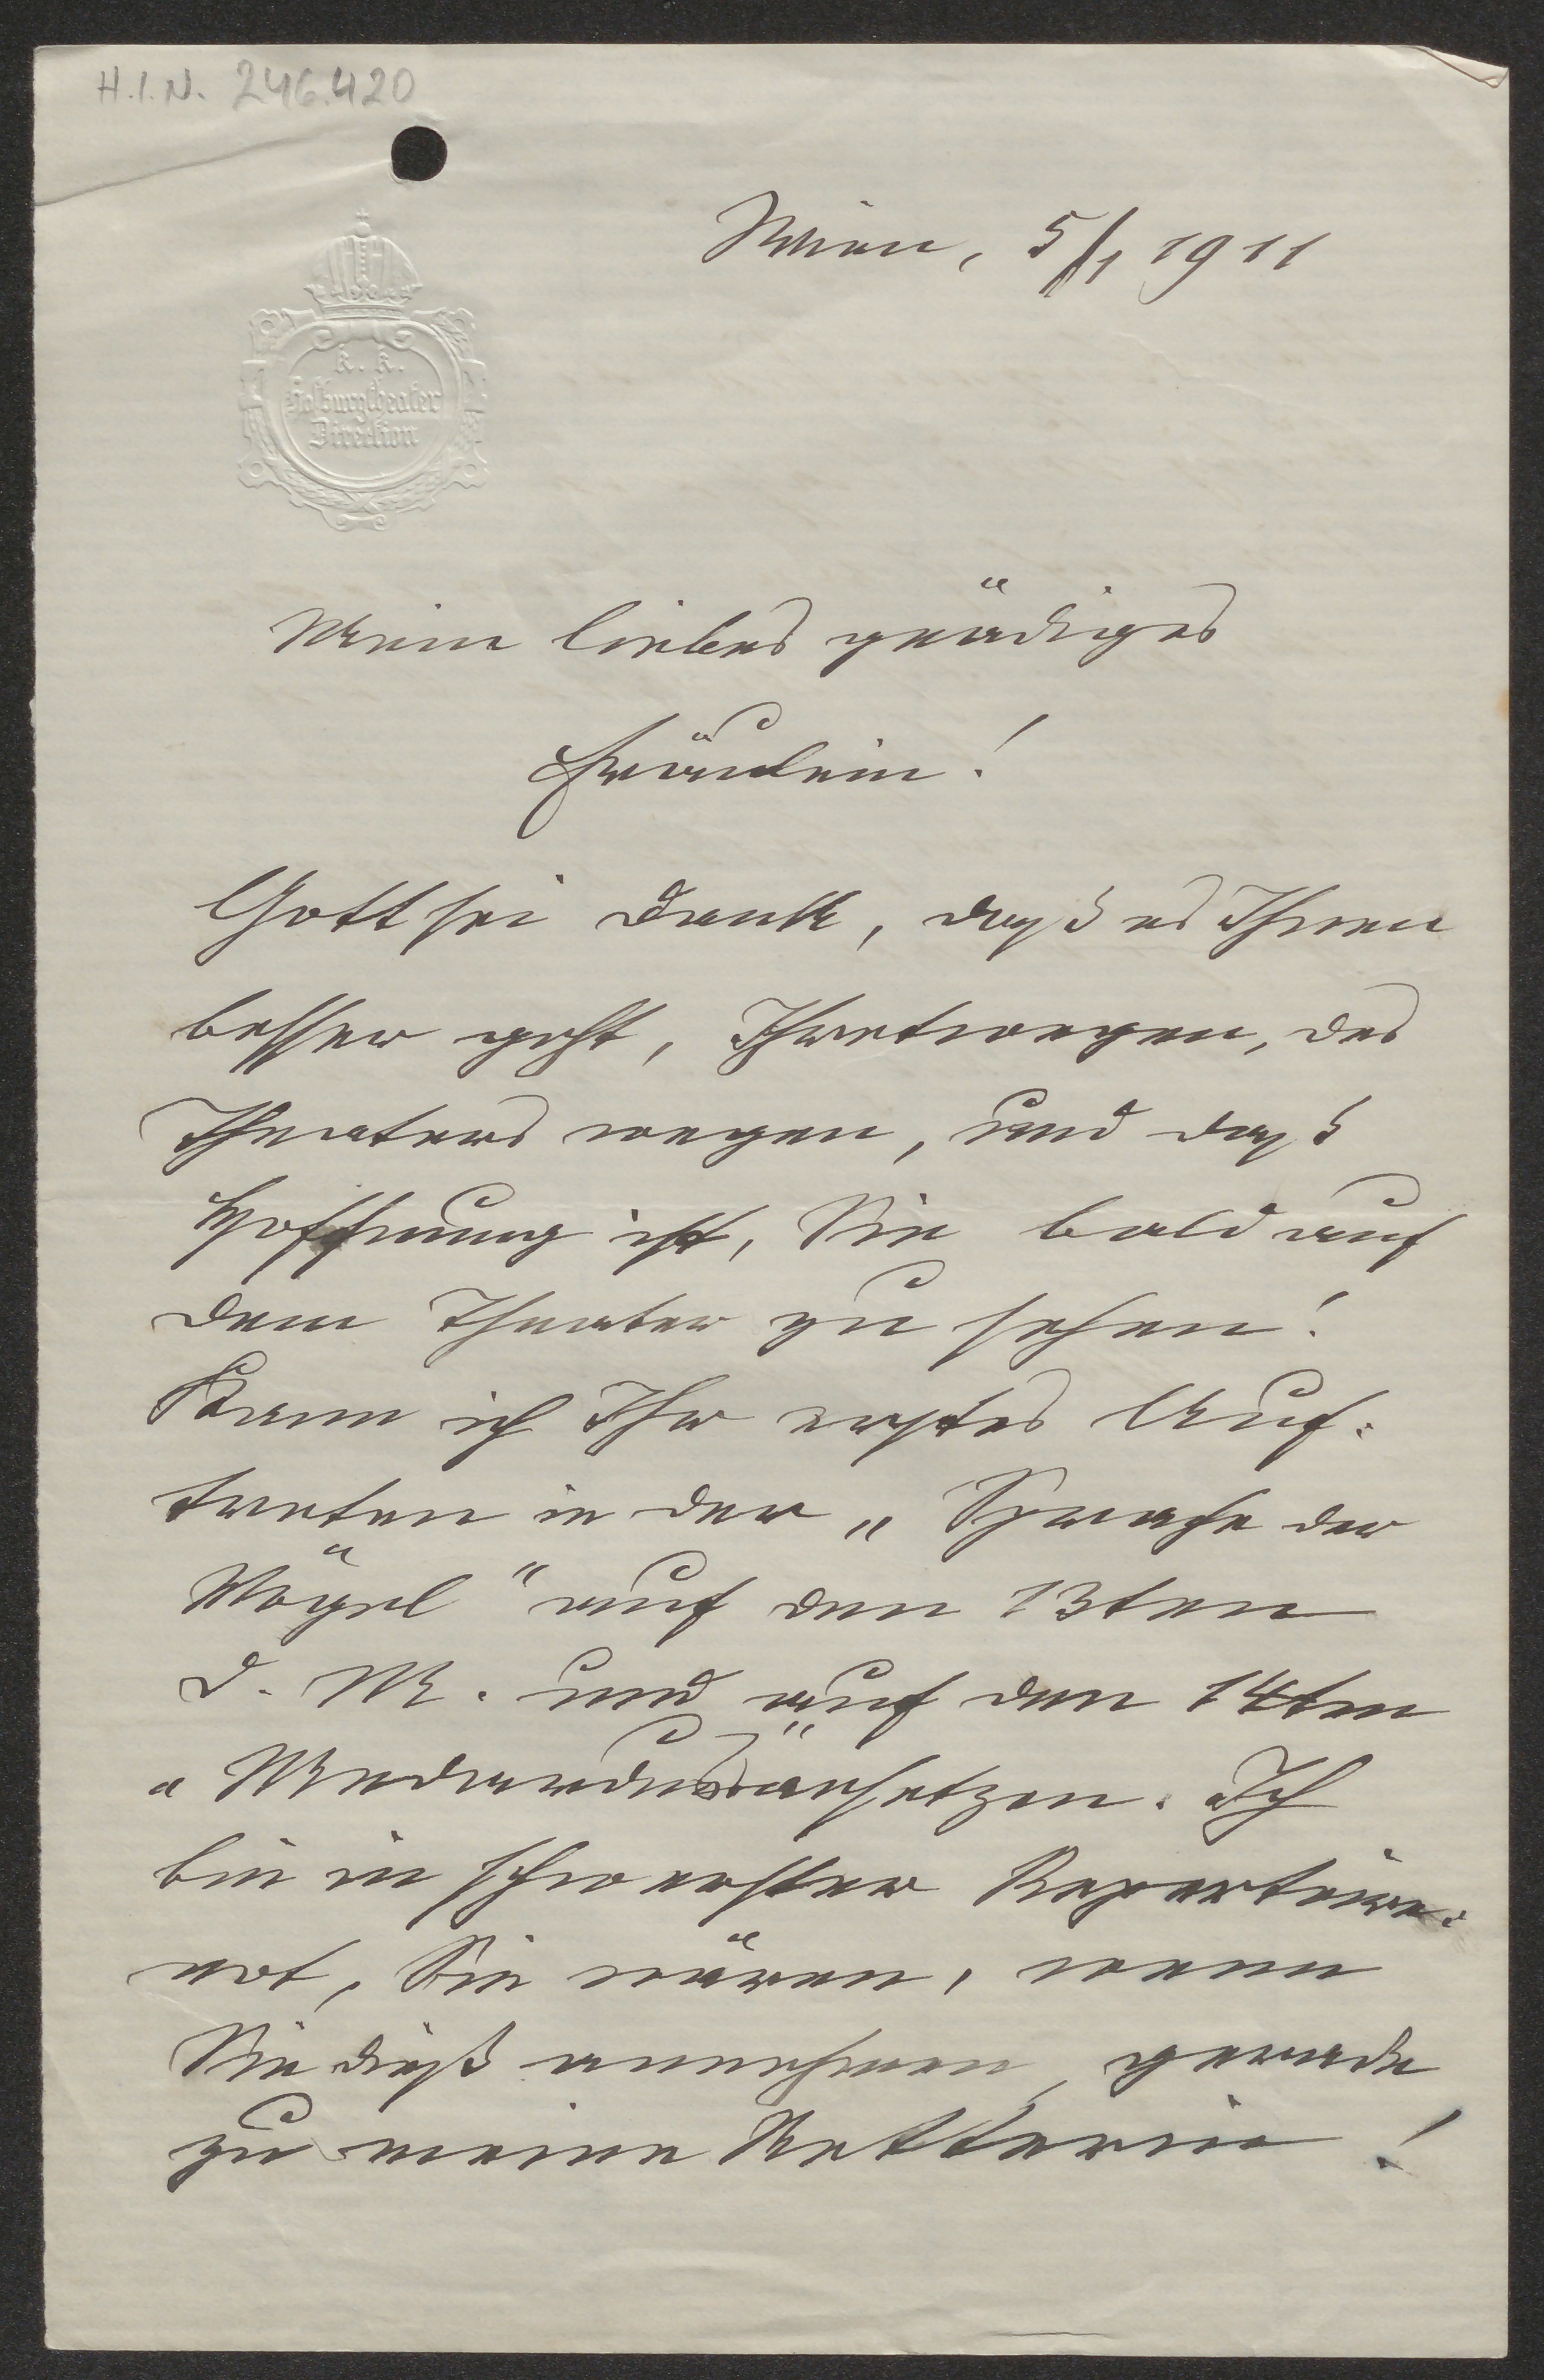 H.I.N. 246.420
Wien, 5/1 1911
k. k.
Hofburgtheater
Direction
Mein liebes gnädiges
Fräulein!
Gott sei Dank, daß es Ihnen
besser geht, Ihretwegen, des
Theaters wegen, und daß
Hoffnung ist, Sie bald auf
dem Theater zu sehen!
Kann ich Ihr erstes Auf-
treten in der „Sprache der
Vögel" auf den 13ten
d. M. und auf den 14ten
„Medardus" ansetzen. Ich
bin in schwerster Repertoire-
not, Sie wären, wenn
Sie dieß annehmen, gerade
zu meine Retterin!